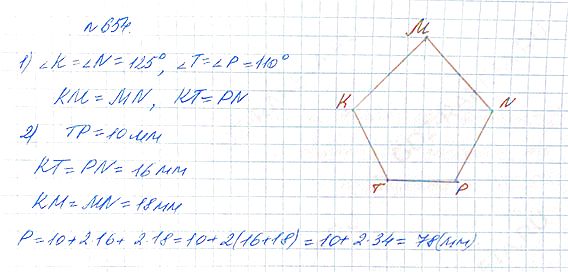 № 654.
1) ∠K = ∠N = 125°, ∠T = ∠P = 110°
KM = MN, KT = PN
2) TP = 10 мм
KT = PN = 16 мм
KM = MN = 18 мм
P = 10 + 2·16 + 2·18 = 10 + 2(16+18) = 10 + 2·34 = 78 (мм)
M
K
N
T
P